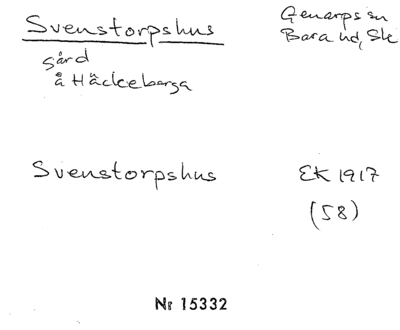 Svenstorpshus
Genarps sn
Bara hd, Sk
gård
å Häckeberga
Svenstorpshus
EK 1917
(58)
Nr 15332